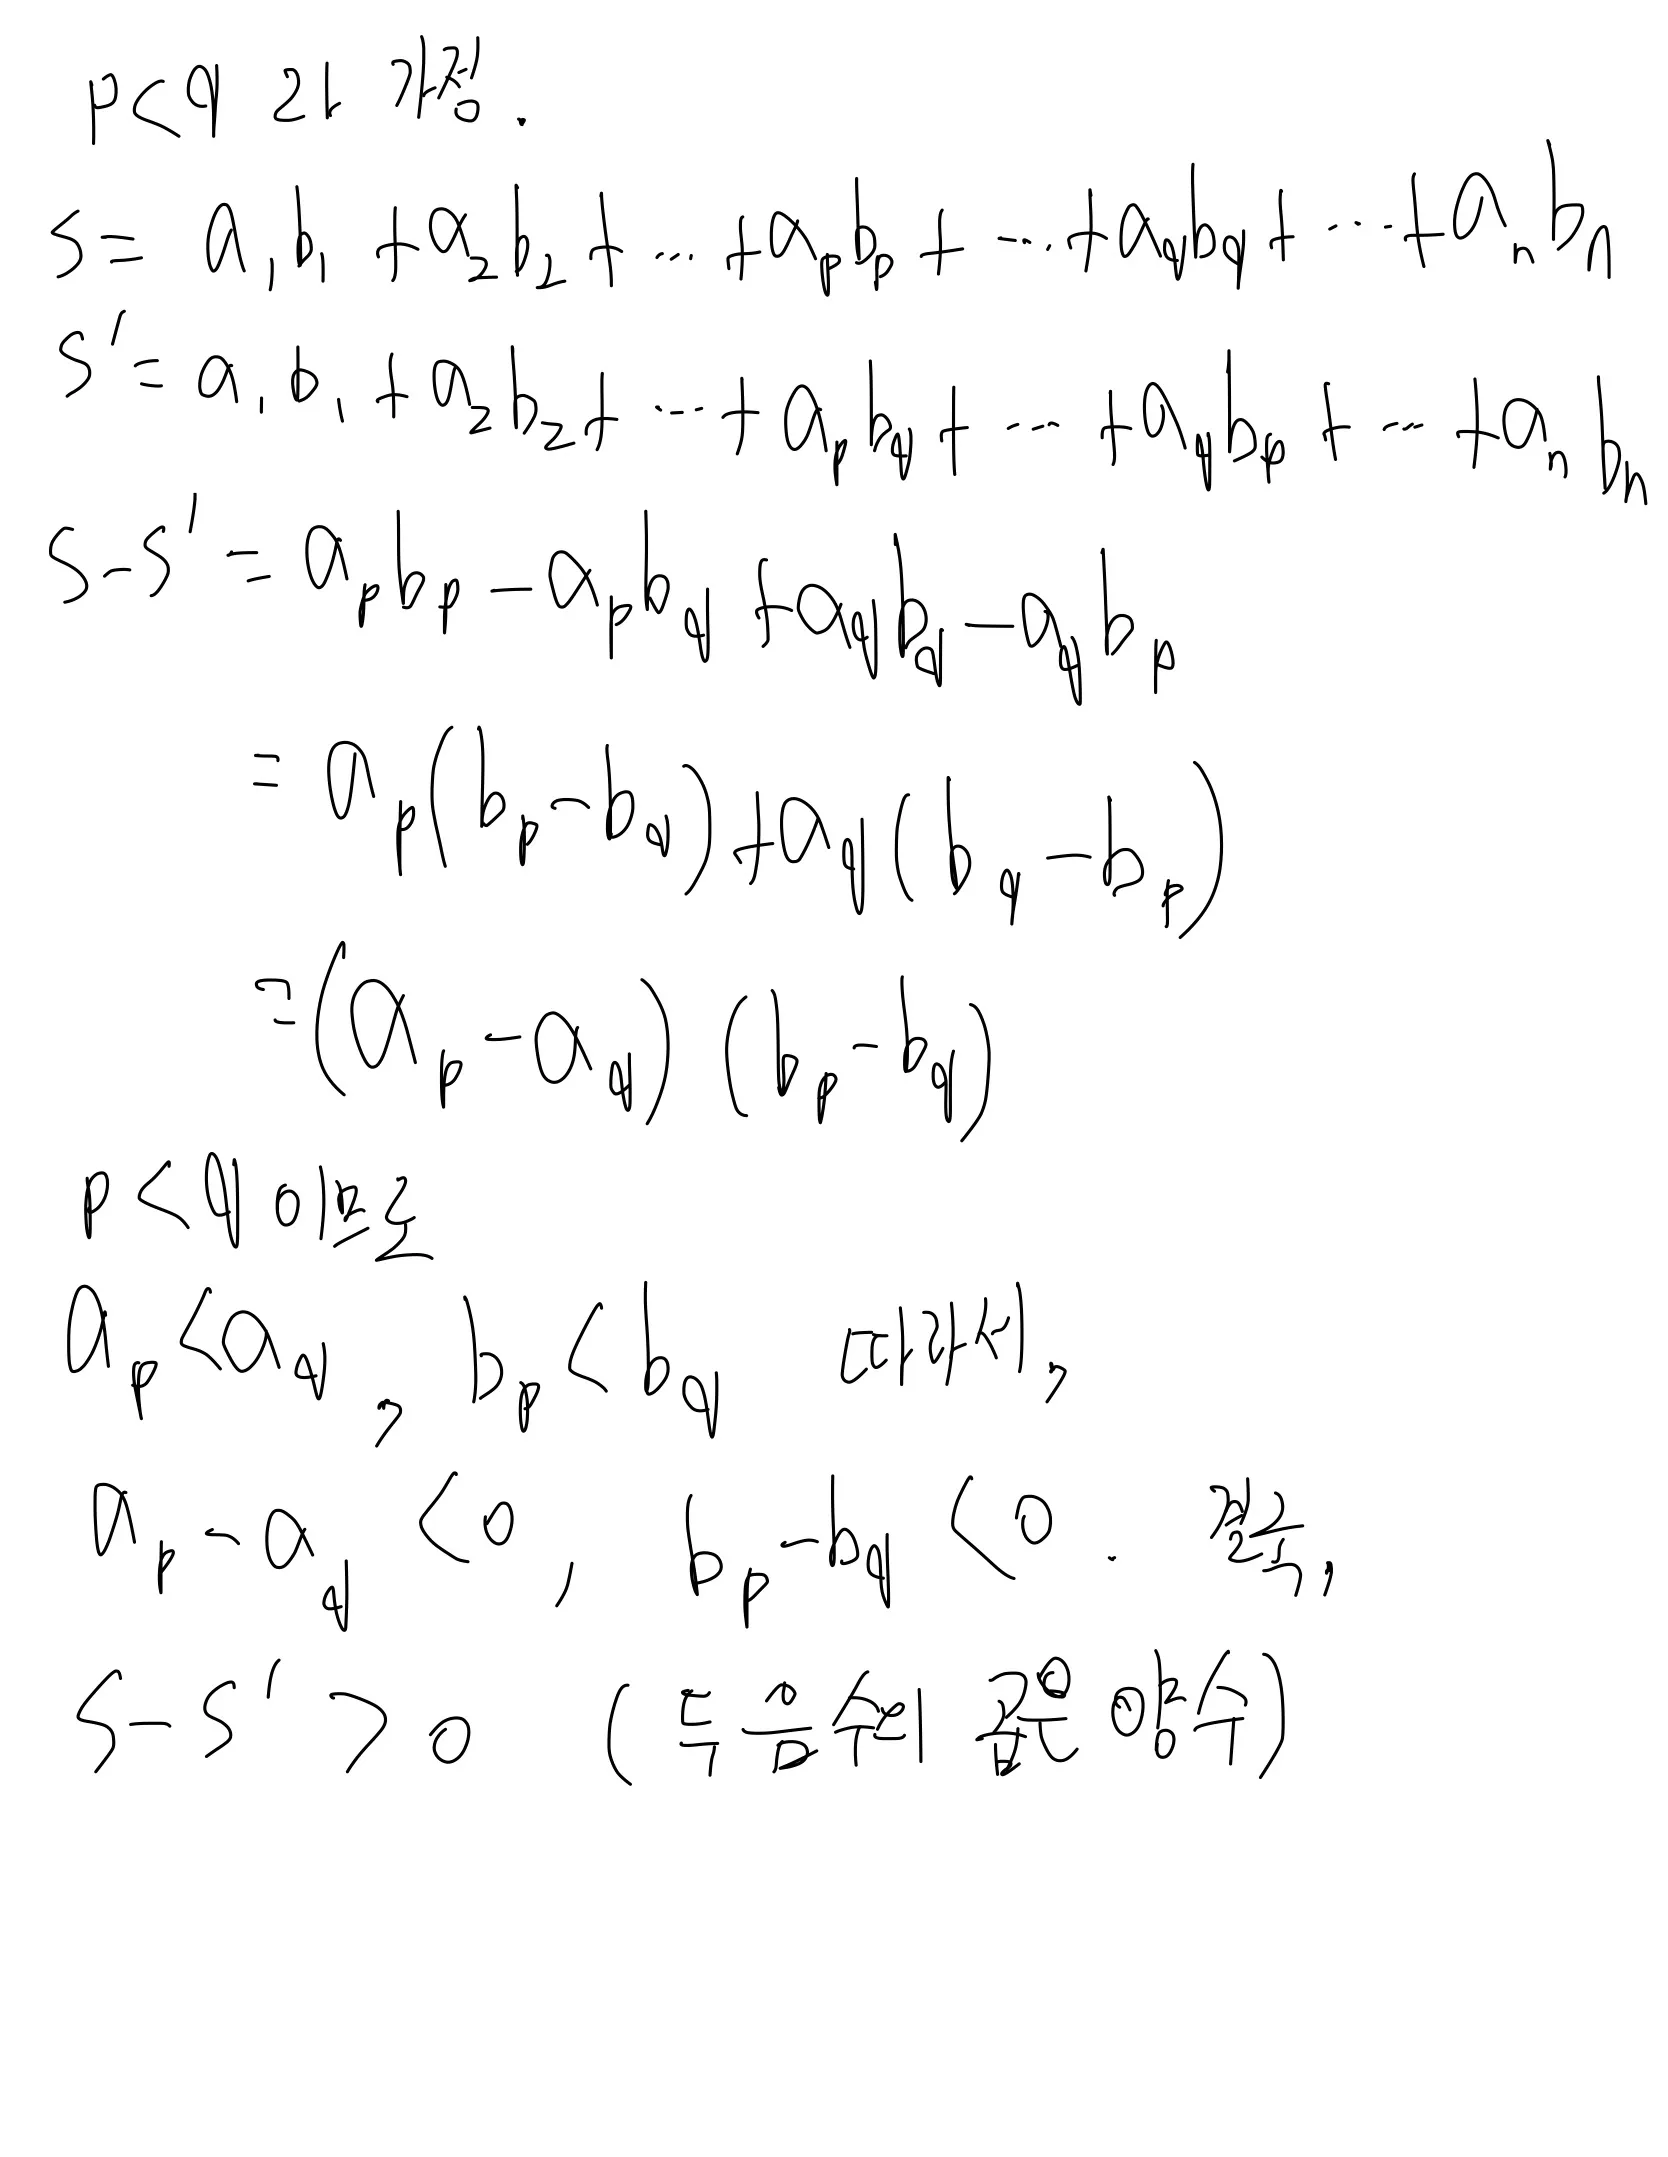 p<q 라 가정.
S = a₁b₁ + a₂b₂ + ... + aₚbₚ + ... + a_qb_q + ... + aₙbₙ
S' = a₁b₁ + a₂b₂ + ... + aₚb_q + ... + a_qbₚ + ... + aₙbₙ
S-S' = aₚbₚ - aₚb_q + a_qb_q - a_qbₚ
= aₚ(bₚ-b_q) + a_q(b_q-bₚ)
= (aₚ-a_q)(bₚ-b_q)
p<q 이므로
aₚ<a_q, bₚ<b_q 따라서,
aₚ-a_q <0, bₚ-b_q <0. 결국,
S-S' >0 (두 음수의 곱은 양수)